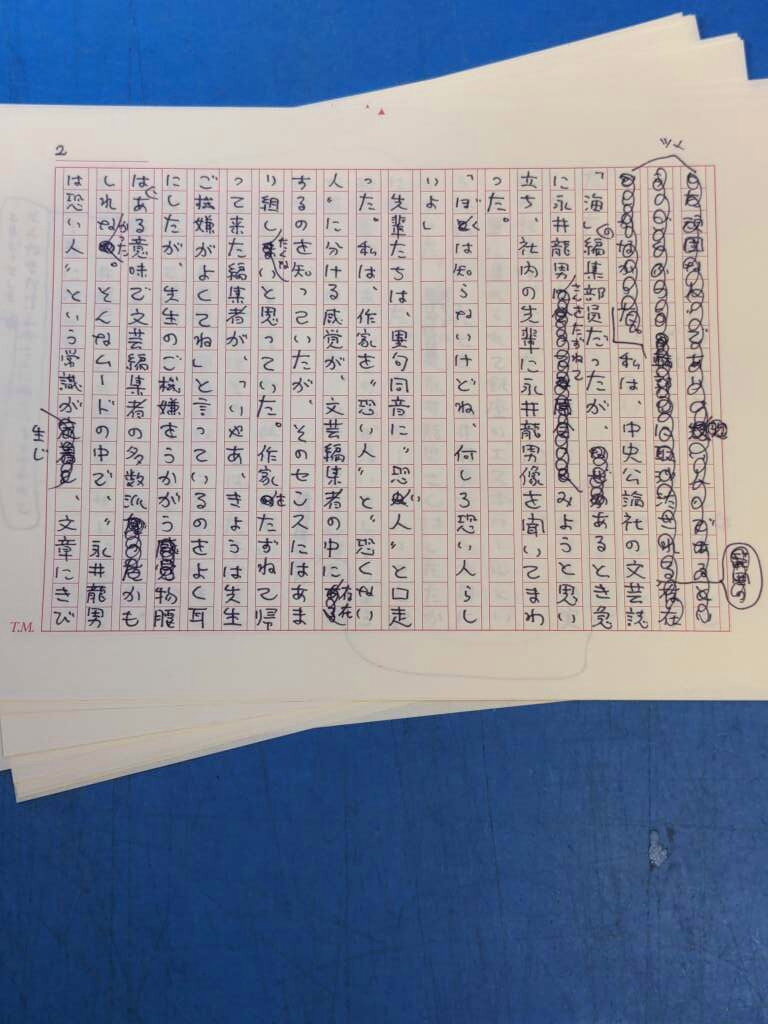 2
私は、中央公論社の文芸誌
「海」の編集部員だったが、あるとき急
に永井龍男さんをたずねてみようと思い
立ち、社内の先輩に永井龍男像を聞いてまわ
った。
「ぼくは知らないけどね、何しろ恐い人らし
いよ」
先輩たちは、異句同音に〝恐い人〟と口走
った。私は、作家を〝恐い人〟と〝恐くない
人〟に分ける感覚が、文芸編集者の中に存在
するのを知っていたが、そのセンスにはあま
り組したくないと思っていた。作家をたずねて帰
って来た編集者が、「いやあ、きょうは先生
ご機嫌がよくてね」と言っているのをよく耳
にしたが、先生のご機嫌をうかがう物腰
は、ある意味で文芸編集者の多数派かも
しれなかった。そんなムードの中で、〝永井龍男
は恐い人〟という常識が生じ、文章にきび
T.M.